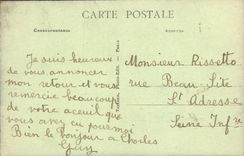 CARTE POSTALE
CORRESPONDANCE
ADRESSE
Je suis heureux
de vous annoncer
mon retour et vous
remercie beaucoup
de votre aceuil que
vous avez eu pour moi
Bien le bonjour à Charles
Guy
Monsieur Rissetto
rue Beau Site
St Adresse
Seine Infre